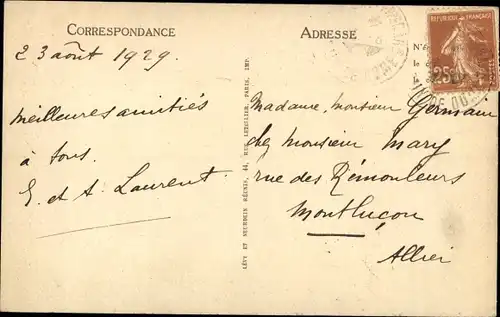 CORRESPONDANCE
23 août 1929
meilleures amitiés
à tous.
E. et A. Laurent.
LÉVY ET NEURDEIN RÉUNIS, 44, RUE LETELLIER, PARIS, IMP.
ADRESSE
RÉPUBLIQUE FRANÇAISE
25c
POSTES
Madame, monsieur Germain
chez monsieur Mary
rue des Rémouleurs
Montluçon
Allier